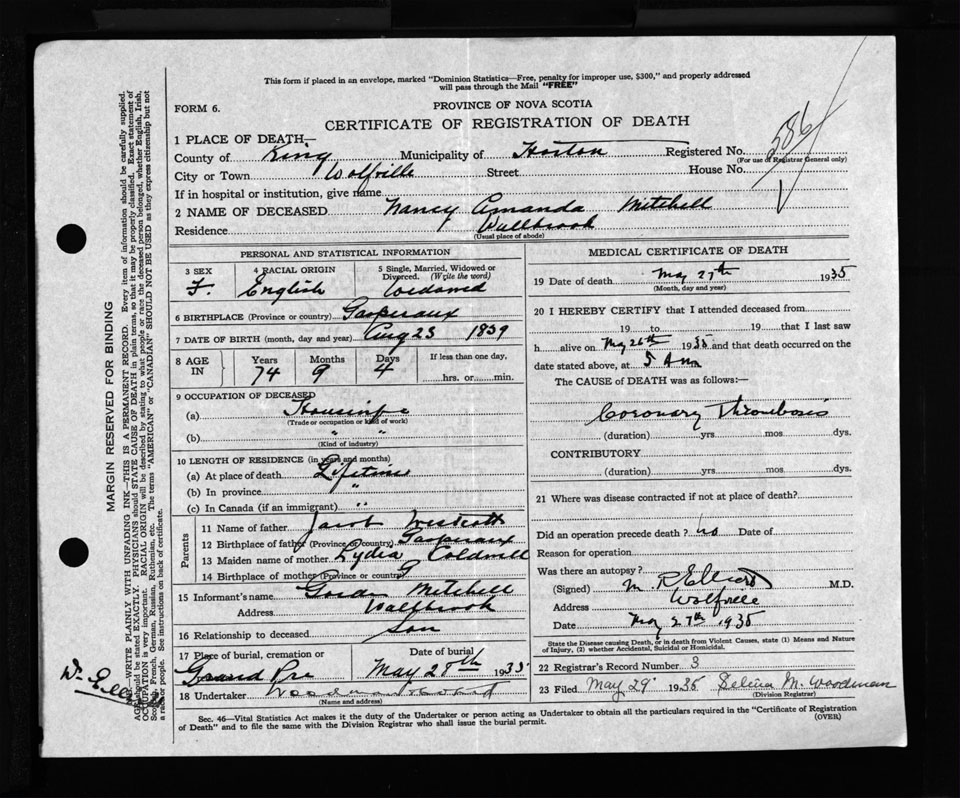 This form if placed in an envelope, marked "Dominion Statistics—Free, penalty for improper use, $300," and properly addressed
will pass through the Mail "FREE"
FORM 6.
PROVINCE OF NOVA SCOTIA
CERTIFICATE OF REGISTRATION OF DEATH
586
1 PLACE OF DEATH—
County of King Municipality of Horton Registered No.
(For use of Registrar General only)
City or Town Wolfville Street House No.
If in hospital or institution, give name
2 NAME OF DECEASED Nancy Amanda Mitchell
Residence Wallbrook
(Usual place of abode)
PERSONAL AND STATISTICAL INFORMATION
3 SEX 4 RACIAL ORIGIN 5 Single, Married, Widowed or Divorced. (Write the word)
F. English Widowed
6 BIRTHPLACE (Province or country) Gaspereaux
7 DATE OF BIRTH (month, day and year) Aug 23 1859
8 AGE IN Years Months Days If less than one day,
74 9 4 hrs. or min.
9 OCCUPATION OF DECEASED
(a) Housewife
(Trade or occupation or kind of work)
(b) " "
(Kind of industry)
10 LENGTH OF RESIDENCE (in years and months)
(a) At place of death Lifetime
(b) In province "
(c) In Canada (if an immigrant) "
Parents
11 Name of father Jacob Westcott
12 Birthplace of father (Province or country) Gaspereaux
13 Maiden name of mother Lydia Coldwell
14 Birthplace of mother (Province or country) G
15 Informant's name Gordon Mitchell
Address Wallbrook
16 Relationship to deceased Son
17 Place of burial, cremation or Date of burial
Grand Pre May 28th 1935
18 Undertaker
(Name and address)
MEDICAL CERTIFICATE OF DEATH
19 Date of death May 27th 1935
(Month, day and year)
20 I HEREBY CERTIFY that I attended deceased from
19 to 19 that I last saw
h alive on May 26th 1935 and that death occurred on the
date stated above, at 5 Am
The CAUSE of DEATH was as follows:—
Coronary Thrombosis
(duration) yrs. mos. dys.
CONTRIBUTORY
(duration) yrs. mos. dys.
21 Where was disease contracted if not at place of death?
Did an operation precede death? no Date of
Reason for operation
Was there an autopsy?
(Signed) M R Elliott M.D.
Address Wolfville
Date May 27th 1935
State the Disease causing Death, or in death from Violent Causes, state (1) Means and Nature
of Injury, (2) whether Accidental, Suicidal or Homicidal.
22 Registrar's Record Number 3
23 Filed May 29" 1935 Selina M. Woodman
(Division Registrar)
Sec. 46—Vital Statistics Act makes it the duty of the Undertaker or person acting as Undertaker to obtain all the particulars required in the "Certificate of Registration
of Death" and to file the same with the Division Registrar who shall issue the burial permit.
(OVER)
MARGIN RESERVED FOR BINDING
WRITE PLAINLY WITH UNFADING INK—THIS IS A PERMANENT RECORD. Every item of information should be carefully supplied.
AGE should be stated EXACTLY. PHYSICIANS should STATE CAUSE OF DEATH in plain terms, so that it may be properly classified. Exact statement of
OCCUPATION is very important. RACIAL ORIGIN will be described by stating to what people or race the deceased person belonged, whether English, Irish,
Scotch, French, German, Russian, Ruthenian, etc. The terms "AMERICAN" or "CANADIAN" SHOULD NOT BE USED as they express citizenship but not
a race or people. See instructions on back of certificate.